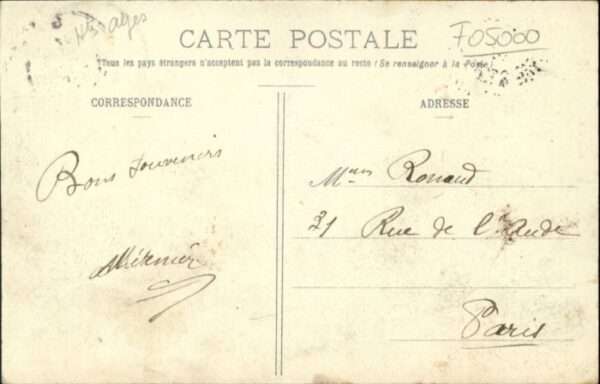 Hts ages
F05000
CARTE POSTALE
Tous les pays étrangers n'acceptent pas la correspondance au recto (Se renseigner à la Poste)
CORRESPONDANCE
ADRESSE
Bons Souvenirs
Mme Renaud
21 Rue de l'Aude
Paris